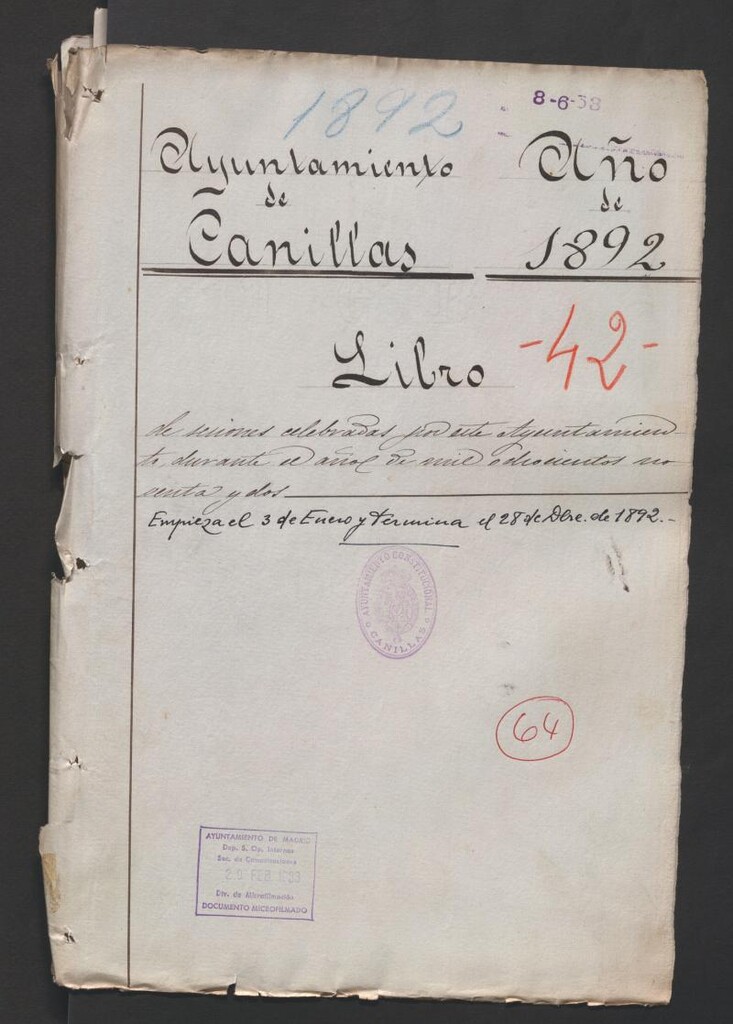 1892
8-6-58
Ayuntamiento
de
Canillas
Año
de
1892
Libro
-42-
de sesiones celebradas por este Ayuntamien-
to, durante el año de mil ochocientos no
venta y dos
Empieza el 3 de Enero y termina el 28 de Dbre. de 1892.-
AYUNTAMIENTO CONSTITUCIONAL
CANILLAS
64
AYUNTAMIENTO DE MADRID
Dep. S. Op. Interno
Sec. de Comunicaciones
FEB
Div. de Microfilmación
DOCUMENTO MICROFILMADO